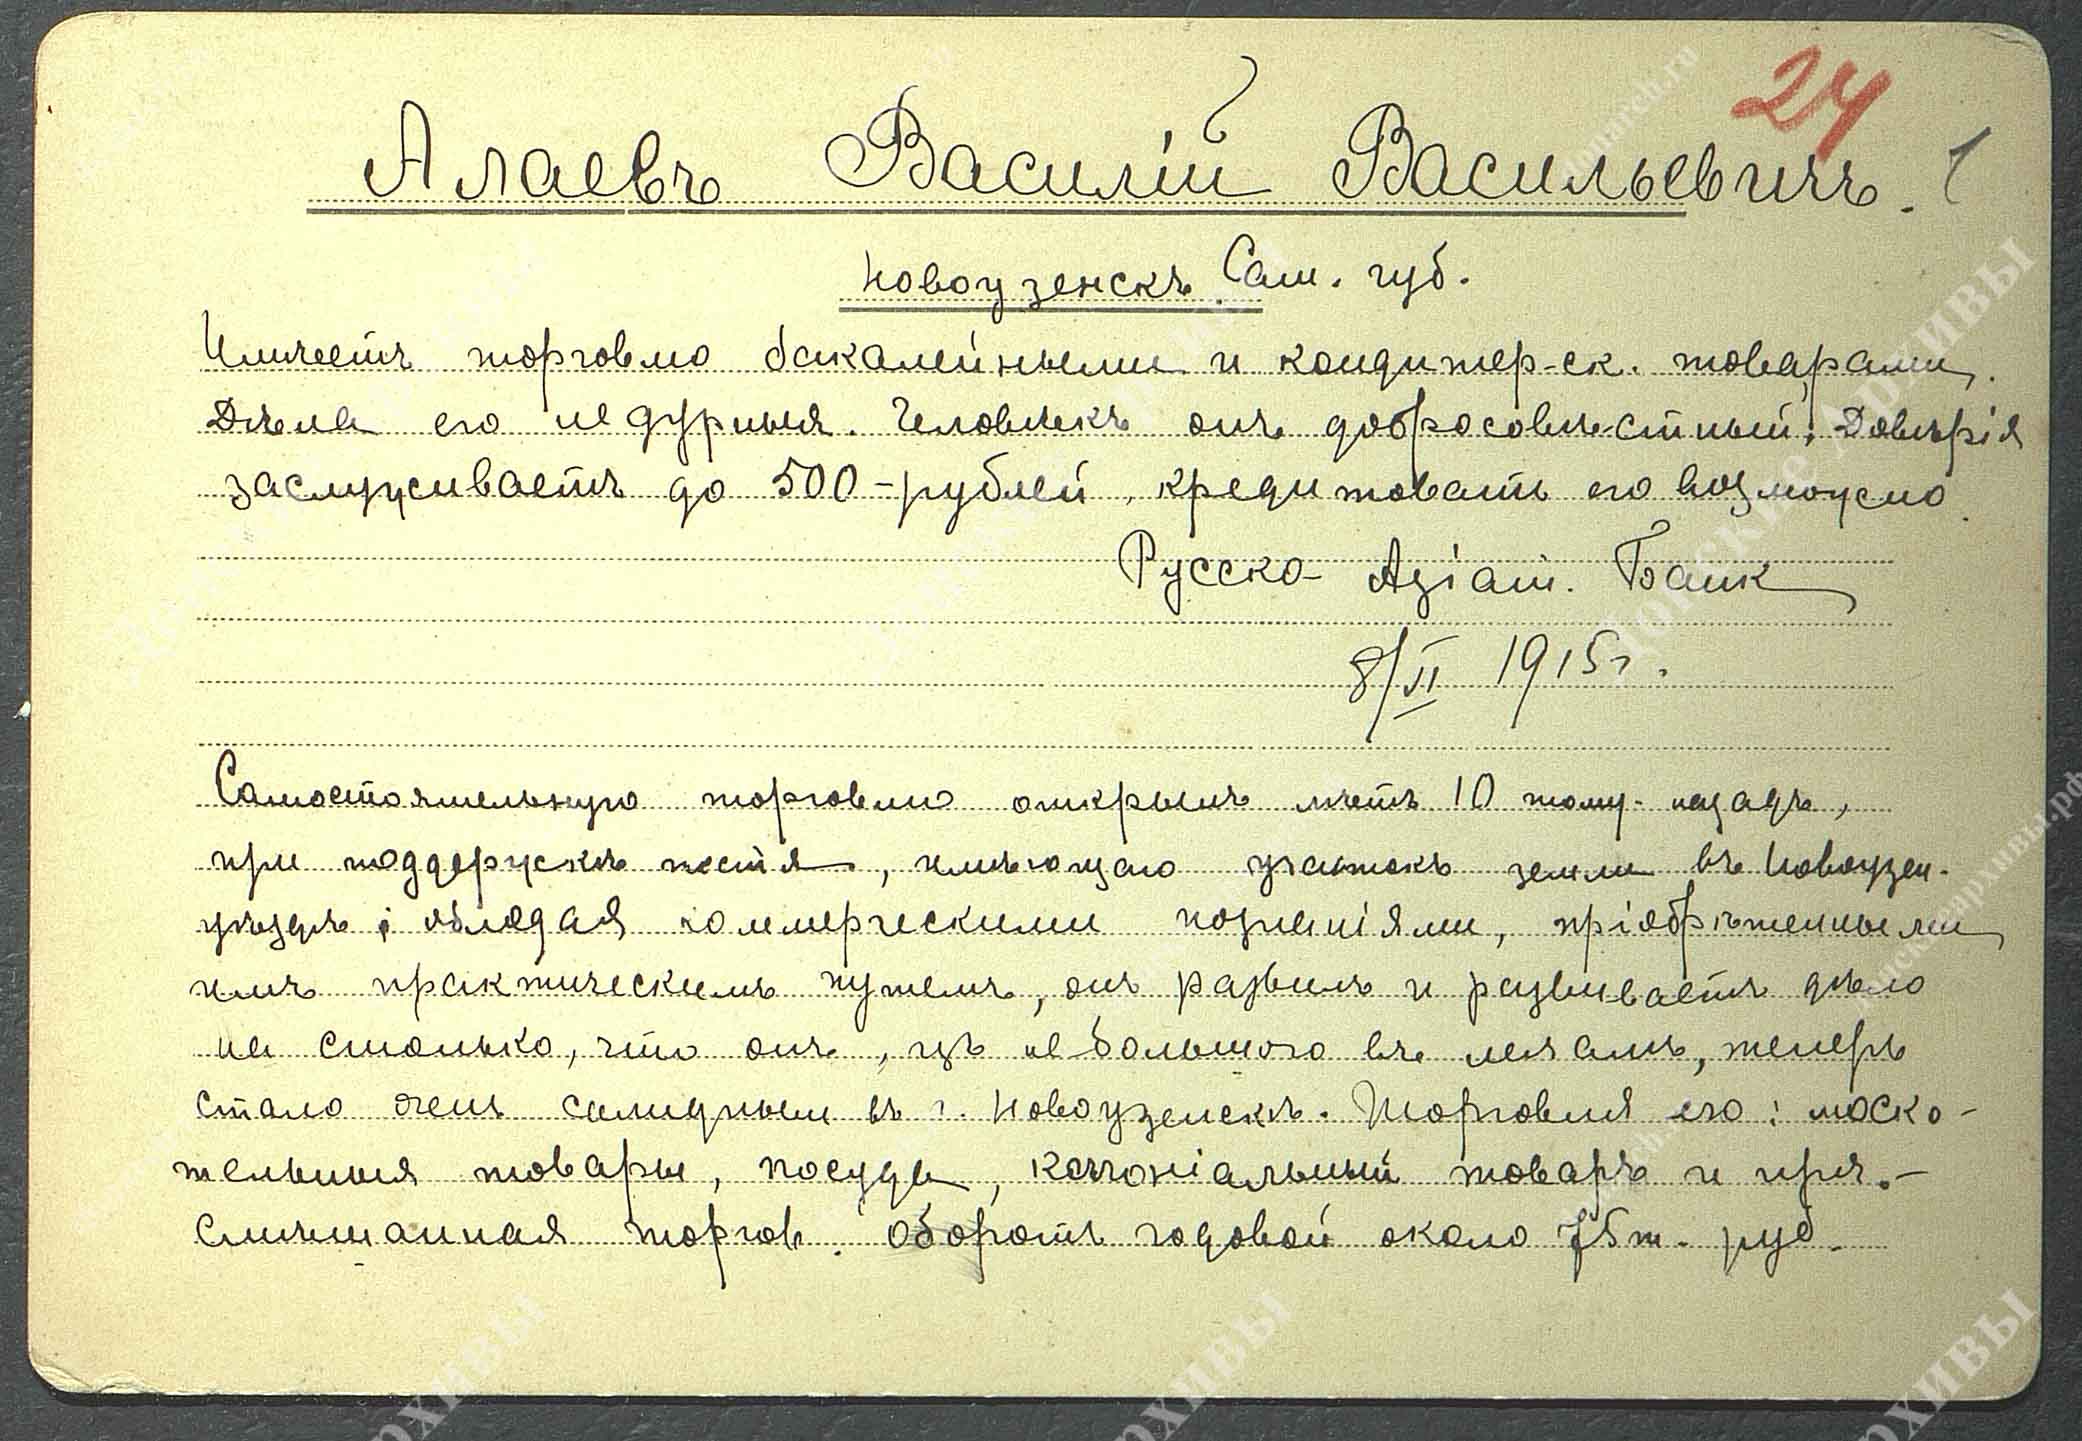 24
Алаевъ Василій Васильевичъ. 1
Новоузенскъ Сам. губ.
Имѣетъ торговлю бакалейными и кондитер-ск. товарами.
Дѣла его не дурныя. Человѣкъ онъ добросовѣстный. Довѣрія
заслуживаетъ до 500-рублей, кредитовать его возможно.
Русско-Азіат. Банк
8/VI 1915 г.
Самостоятельную торговлю открылъ лѣтъ 10 тому-назадъ,
при поддержкѣ тестя, имѣющаго участокъ земли въ Новоузен.
уѣздѣ; обладая коммерческими познаніями, пріобрѣтенными
имъ практическимъ путемъ, онъ развилъ и развиваетъ дѣло
на столько, что онъ, изъ не большого въ началѣ, теперь
стало очень солиднымъ въ г. Новоузенскѣ. Торговля его: моско-
тельныя товары, посуда, колоніальный товаръ и проч.-
Смѣшанная торгов. Оборотъ годовой около 75 т. руб.